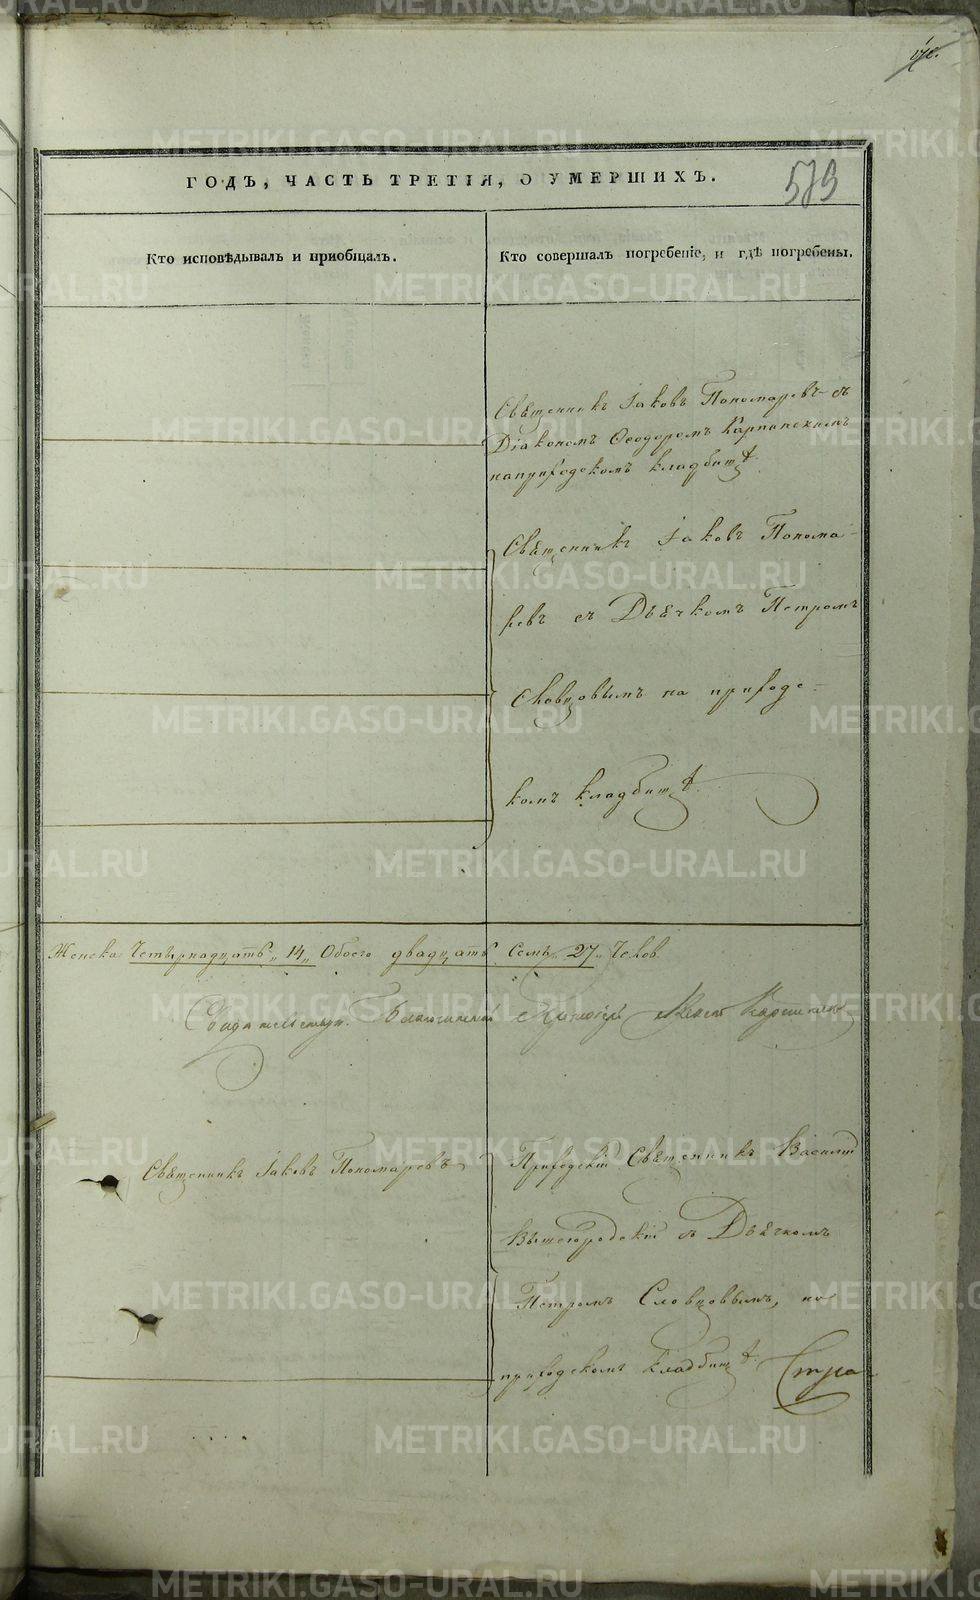 579
ГОДЪ, ЧАСТЬ ТРЕТІЯ, О УМЕРШИХЪ.
Кто исповѣдывалъ и приобщалъ.
Кто совершалъ погребеніе, и гдѣ погребены.
Свѣщенникъ Іаковъ Пономаревъ съ
Діакономъ Ѳеодоромъ Карпинскимъ
наприходскомъ кладбищѣ
Свѣщенникъ Іаковъ Понома-
ревъ съ Дьячкомъ Петромъ
Словцовымъ на приходс-
комъ кладбищѣ.
Женска Четырнадцать „14„ Обоего двадцать Семь „27„ Челов.
Свѣщенникъ Іаковъ Пономаревъ
Приходскій Свѣщенникъ Василій
Вышегородскій съ Дьячкомъ
Петромъ Словцовымъ, на
приходскомъ кладбищѣ
METRIKI.GASO-URAL.RU